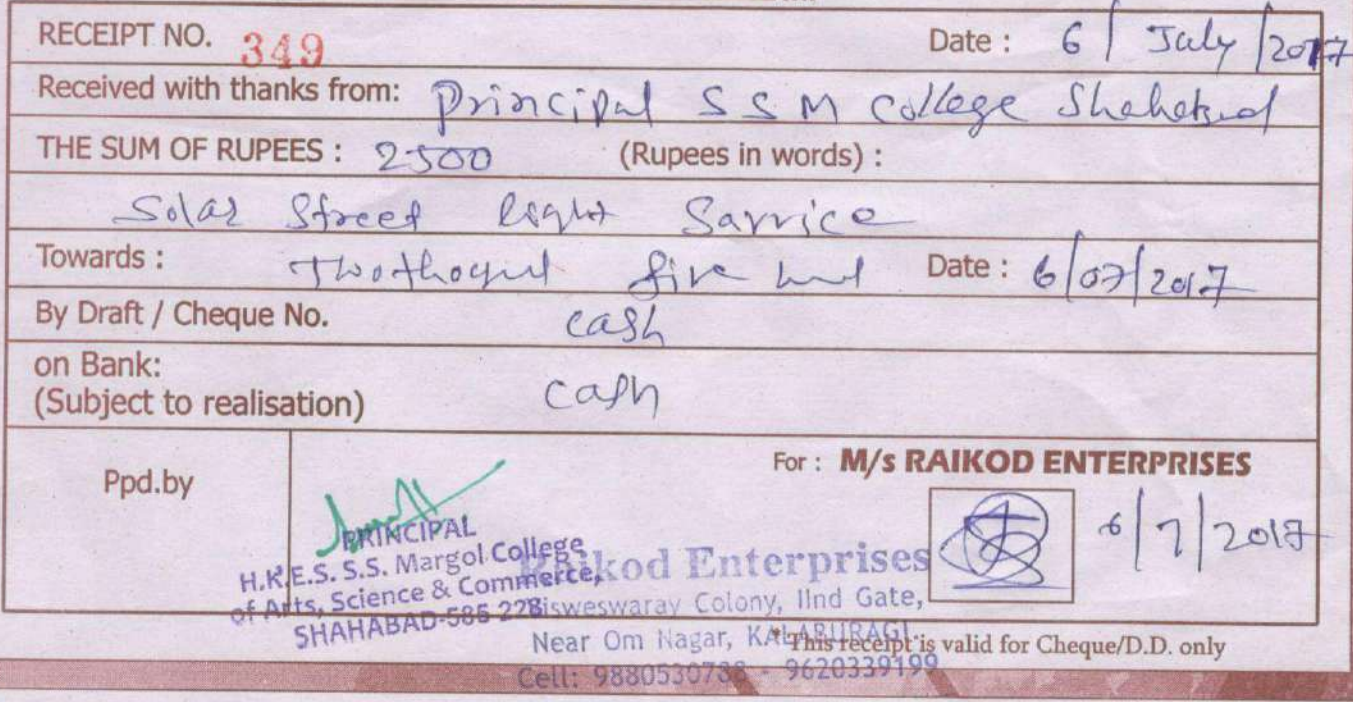 RECEIPT NO. 349 Date : 6 / July / 2017
Received with thanks from: Principal S S M College Shahabad
THE SUM OF RUPEES : 2500 (Rupees in words) :
Solar Street light Sarvice
Towards : five Date : 6/07/2017
By Draft / Cheque No. cash
on Bank:
(Subject to realisation) cash
Ppd.by
For : M/s RAIKOD ENTERPRISES
6/7/2017
PRINCIPAL
H.K.E.S. S.S. Margol College
of Arts, Science & Commerce,
SHAHABAD-585 228
Raikod Enterprises
Bisweswaray Colony, IInd Gate,
Near Om Nagar, KALABURAGI.
*This receipt is valid for Cheque/D.D. only
Cell: 9880530738 - 9620339199